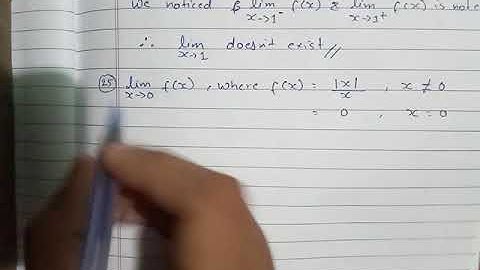 We noticed & lim x→1⁻ f(x) & lim x→1⁺ f(x) is not e
∴ lim x→1 doesn't exist //
(25) lim x→0 f(x), where f(x) = |x|/x , x ≠ 0
= 0 , x = 0